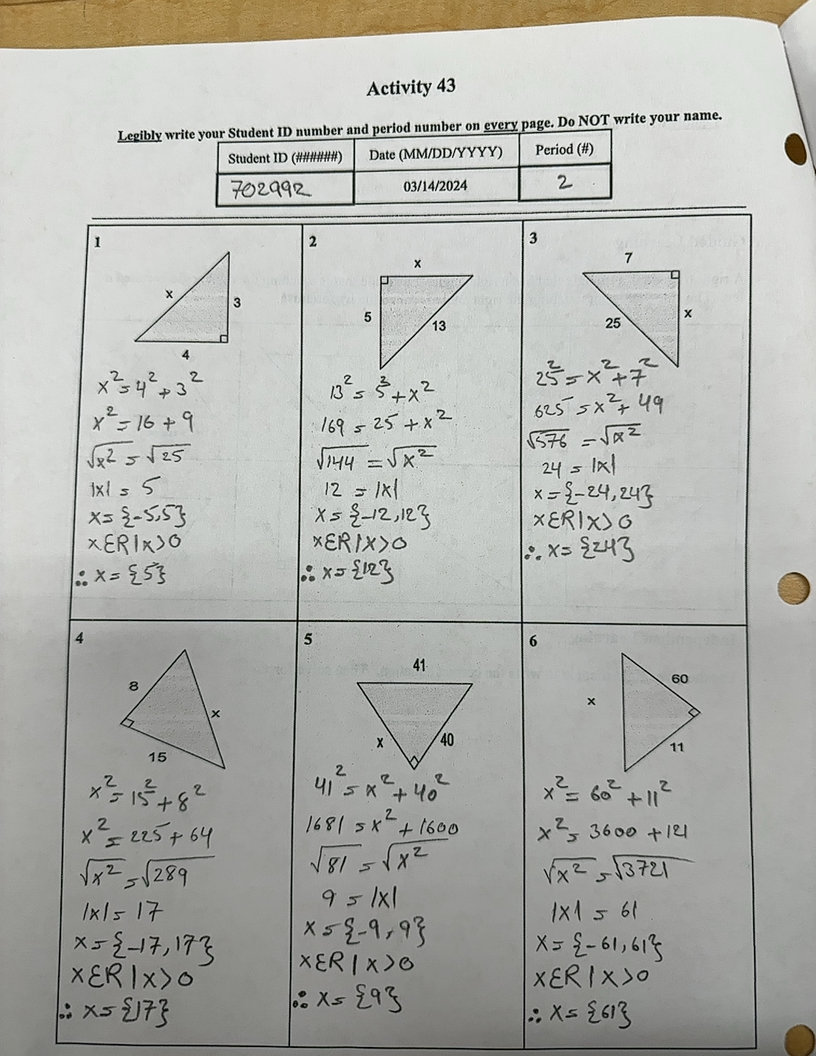 Activity 43
Legibly write your Student ID number and period number on every page. Do NOT write your name.
Student ID (######) Date (MM/DD/YYYY) Period (#)
702992 03/14/2024 2
1
x
3
4
x² = 4² + 3²
x² = 16 + 9
√x² = √25
|x| = 5
x = {-5,5}
xƐR|x>0
∴ x = {5}
2
x
5
13
13² = 5² + x²
169 = 25 + x²
√144 = √x²
12 = |x|
x = {-12,12}
xƐR|x>0
∴ x = {12}
3
7
25
x
25² = x² + 7²
625 = x² + 49
√576 = √x²
24 = |x|
x = {-24,24}
xƐR|x>0
∴ x = {24}
4
8
x
15
x² = 15² + 8²
x² = 225 + 64
√x² = √289
|x| = 17
x = {-17,17}
xƐR|x>0
∴ x = {17}
5
41
x
40
41² = x² + 40²
1681 = x² + 1600
√81 = √x²
9 = |x|
x = {-9,9}
xƐR|x>0
∴ x = {9}
6
60
x
11
x² = 60² + 11²
x² = 3600 + 121
√x² = √3721
|x| = 61
x = {-61,61}
xƐR|x>0
∴ x = {61}